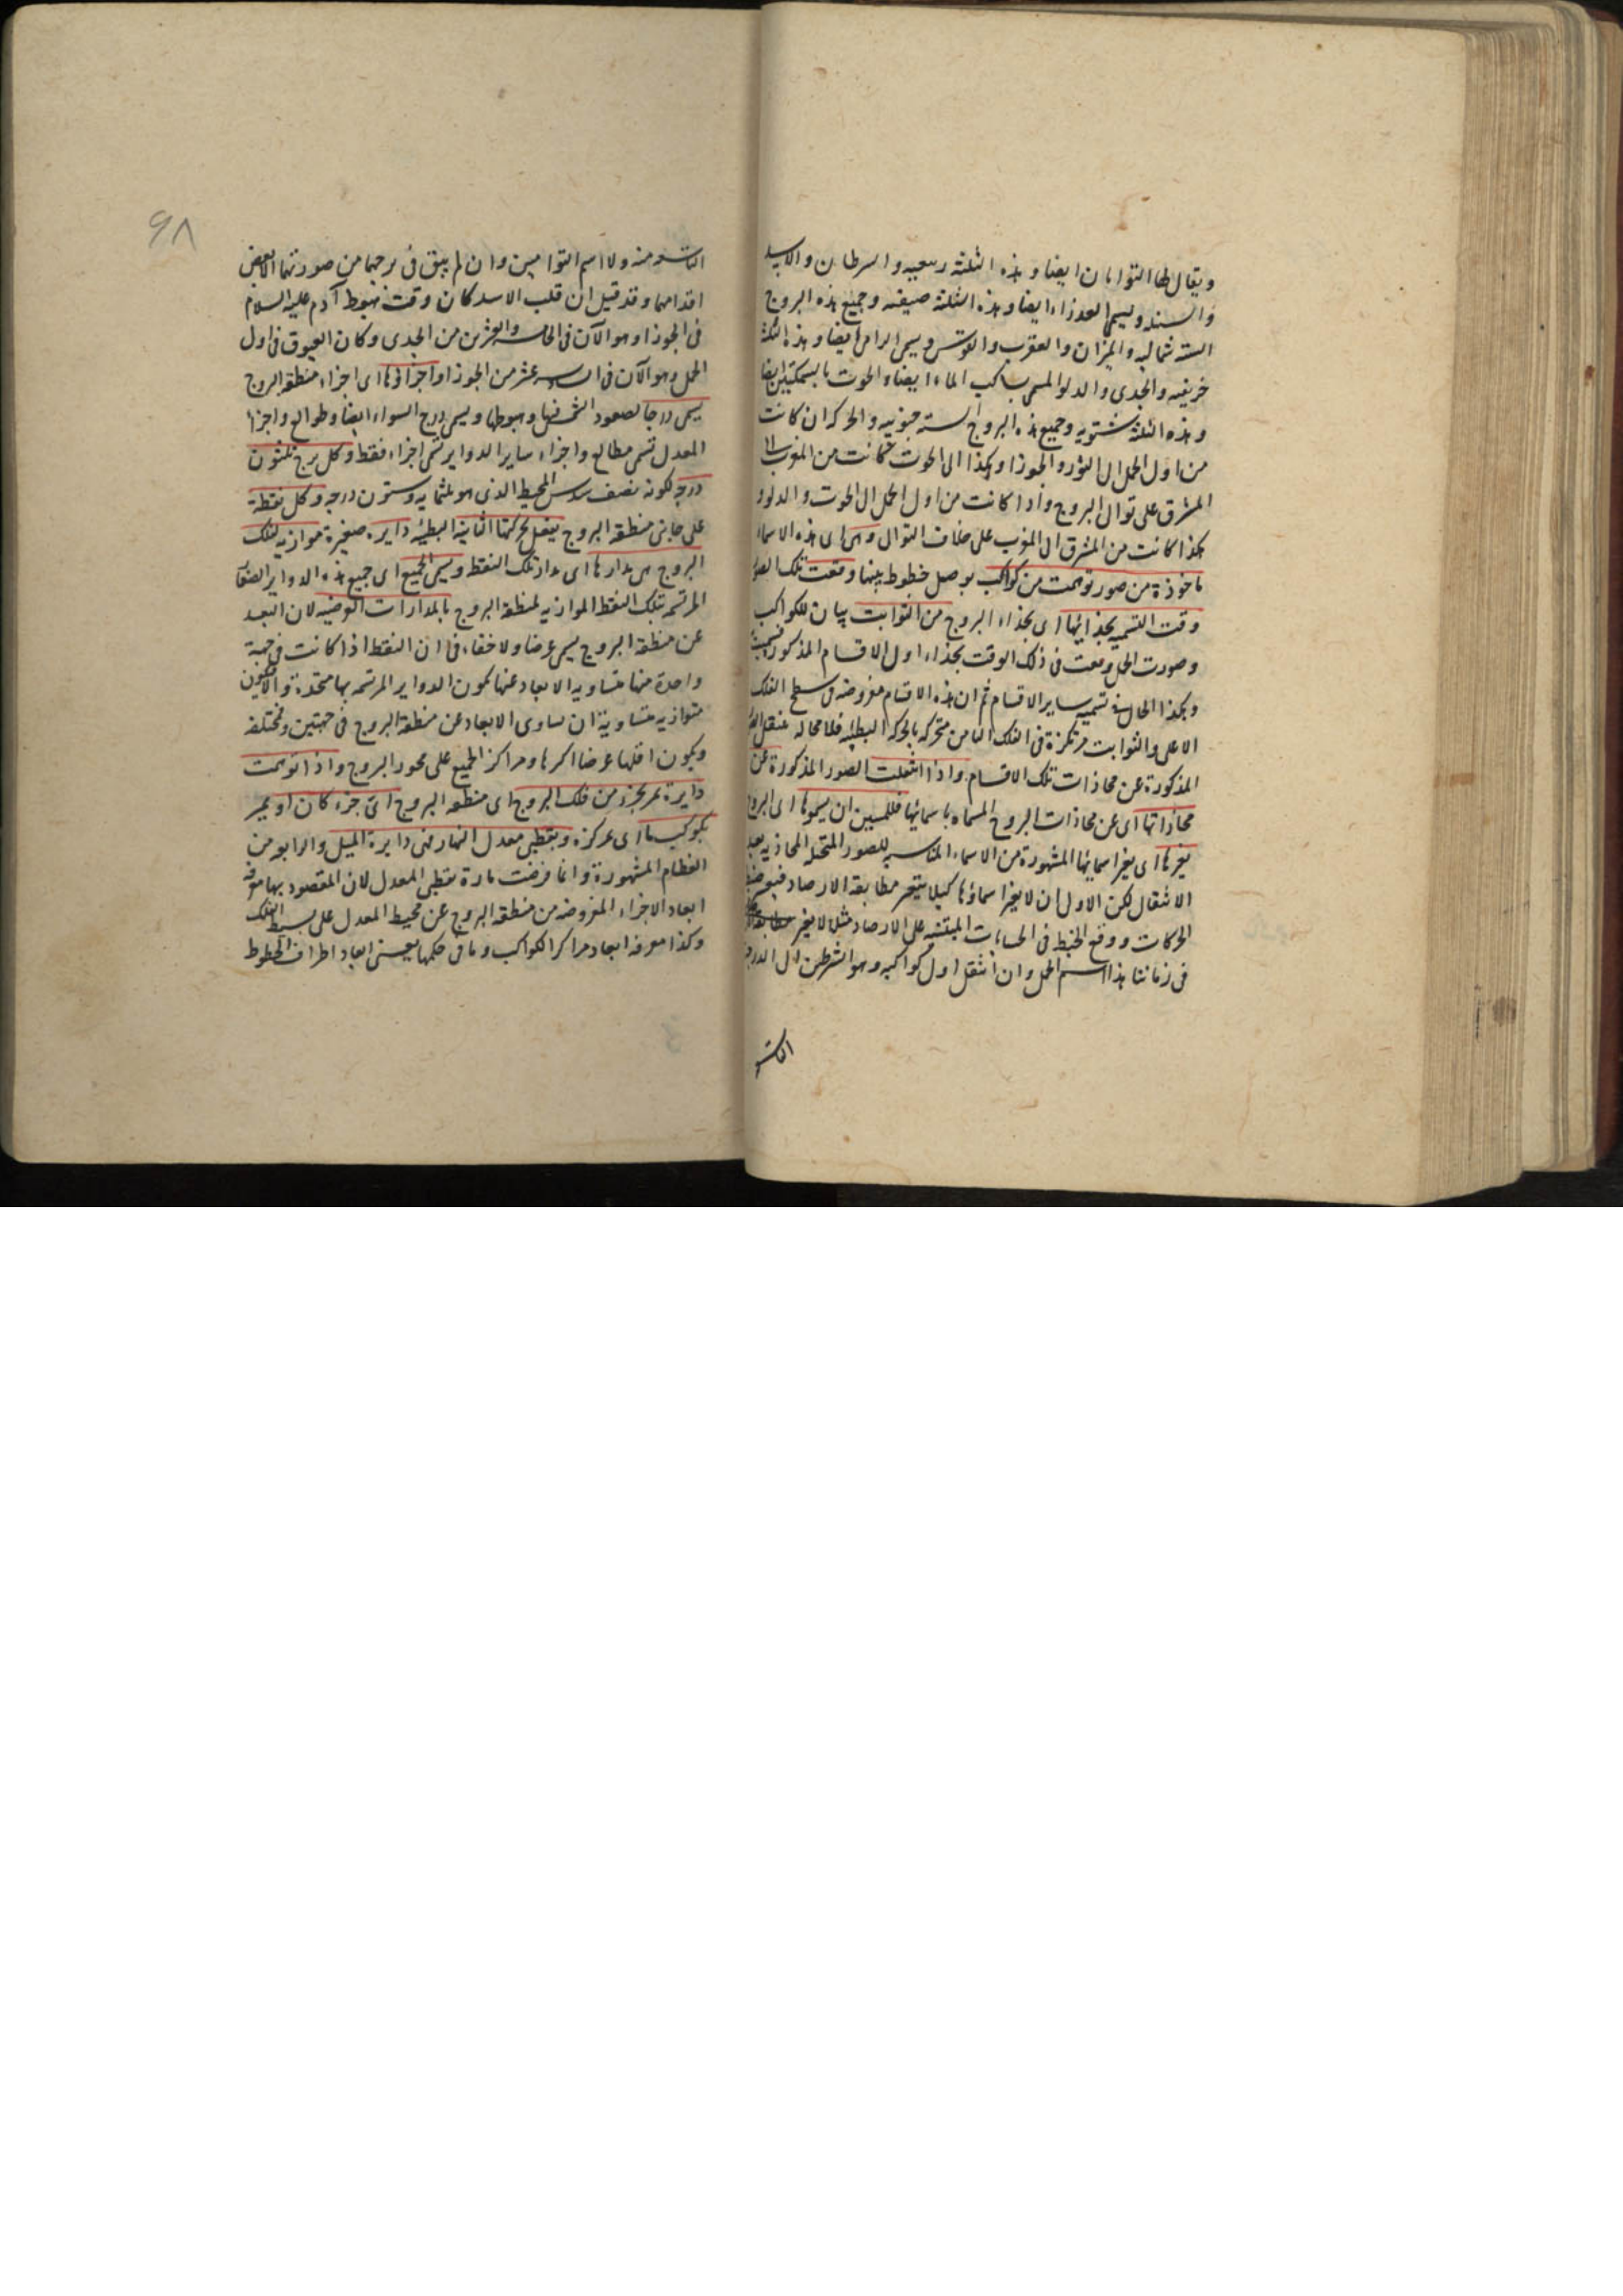 ويقال لها التوامان ايضا وهذه الثلثة ربيعيه والسرطان والاسد
والسنبله ويسمى العذراء ايضا وهذه الثلثة صيفيه وجميع هذه البروج
الستة شماليه والميزان والعقرب والقوس ويسمى الرامى ايضا وهذه الثلثة
خريفيه والجدى والدلو المسمى بساكب الماء ايضا والحوت بالسمكتين ايضا
وهذه الثلثة شتويه وجميع هذه البروج الستة جنوبيه والحركة ان كانت
من اول الحمل الى الثور والجوزا وهكذا الى الحوت كانت من المغرب الى
المشرق على توالى البروج واذا كانت من اول الحمل الى الحوت والدلو و
هكذا كانت من المشرق الى المغرب على خلاف التوالى وهى اى هذه الاسماء
ماخوذة من صور توهمت من كواكب بوصل خطوط بينها وقعت تلك الصور
وقت التسمية بحذائها اى بحذاء البروج من الثوابت بيان للكواكب
وصورت الحمل وقعت فى ذلك الوقت بحذاء اول الاقسام المذكورة فسميت
وهكذا الحال فى تسمية ساير الاقسام ثم ان هذه الاقسام مفروضه فى سطح الفلك
الاعلى والثوابت مرتكزة فى الفلك الثامن متحركه بالحركه البطيئه فلا محاله تنتقل الصور
المذكورة عن محاذات تلك الاقسام واذا انتقلت الصور المذكورة عن
محاذاتها اى عن محاذات البروج المسماه باسمائها فللمسمين ان يسموها اى البروج
بغيرها اى بغير اسمائها المشهورة من الاسماء المناسبه للصور المتخيله المحاذيه بعد
الانتقال لكن الاولى ان لا يغير اسماؤها كيلا يتحير مطابقة الارصاد فيعسر ضبط
الحركات ووقع الخبط فى الحسابات المبتنيه على الارصاد مثلا لا يغير
فى زماننا هذا اسم الحمل وان انتقل اول كواكبه وهو الشرطين الى الدرجة
التاسعة
٩٨
التاسعة منه ولا اسم التوامين وان لم يبق فى برجهما من صورتهما الا بعض
اقدامهما وقد قيل ان قلب الاسد كان وقت هبوط آدم عليه السلام
فى الجوزا وهو الآن فى الخامسة والعشرين من الجدى وكان العيوق فى اول
الحمل وهو الآن فى السادسة عشر من الجوزا واجزاؤها اى اجزاء منطقة البروج
يسمى درجا لصعود الشمس فيها وهبوطها ويسمى درج السواء ايضا وطوالع واجزا
المعدل تسمى مطالع واجزاء ساير الدواير تسمى اجزاء فقط وكل برج ثلثون
درجه لكونه نصف سدس المحيط الذى هو ثلثمايه وستون درجه وكل نقطة
على جانبى منطقة البروج يفعل بحركتها الثانية البطيئه دايرة صغيرة موازيه لفلك
البروج هى مدارها اى مدار تلك النقط ويسمى الجميع اى جميع هذه الدواير الصغار
المرتسمه بتلك النقط الموازيه لمنطقة البروج بالمدارات العرضيه لان البعد
عن منطقة البروج يسمى عرضا ولا خفاء فى ان النقط اذا كانت فى جهة
واحدة منها متساويه الابعاد عنها تكون الدواير المرتسمه بها متحدة والا فيكون
متوازيه متساوية ان تساوى الابعاد عن منطقة البروج فى جهتين ومختلفه
ويكون اقلها عرضا اكبرها ومراكز الجميع على محور البروج واذا توهمت
دايرة تمر بجزء من فلك البروج اى منطقة البروج اى جزء كان او يمر
بكوكب ما اى بمركزه وبقطبى معدل النهار فهى دايرة الميل والرابع من
العظام المشهورة وانما فرضت مارة بقطبى المعدل لان المقصود بها معرفة
ابعاد الاجزاء المفروضه من منطقة البروج عن محيط المعدل على بسيط الفلك
وكذا معرفة ابعاد مراكز الكواكب وما فى حكمها يعنى ابعاد اطراف الخطوط